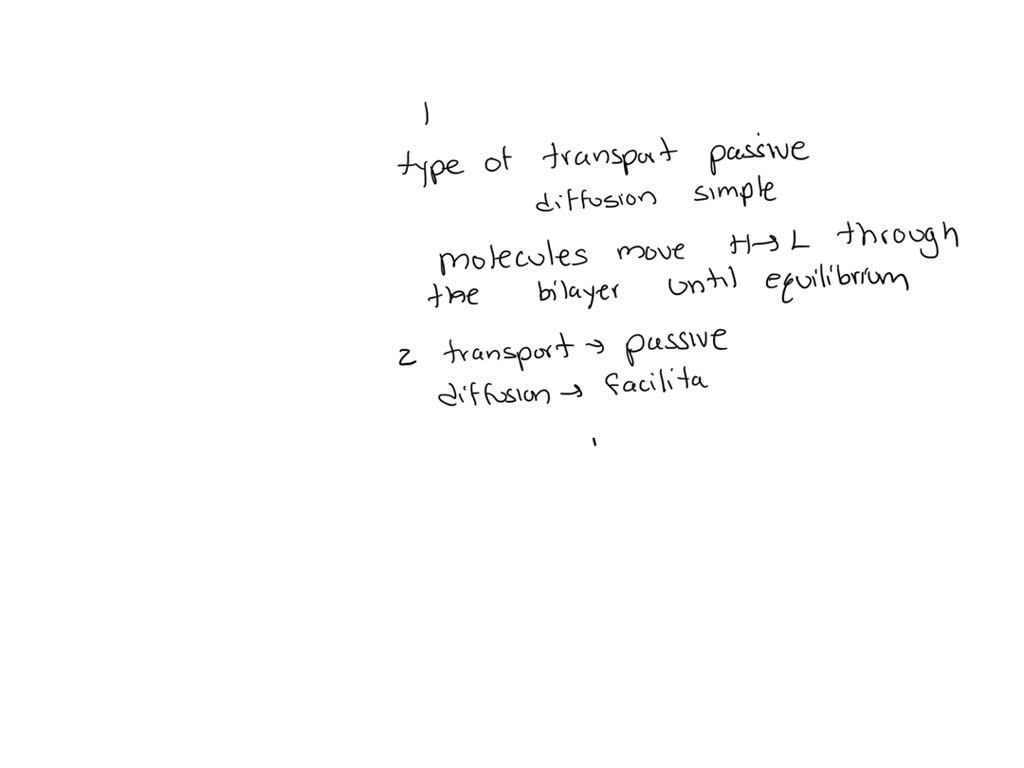 1
type of transport passive
diffusion simple
molecules move H→L through
the bilayer until equilibrium
2 transport → passive
diffusion → facilita